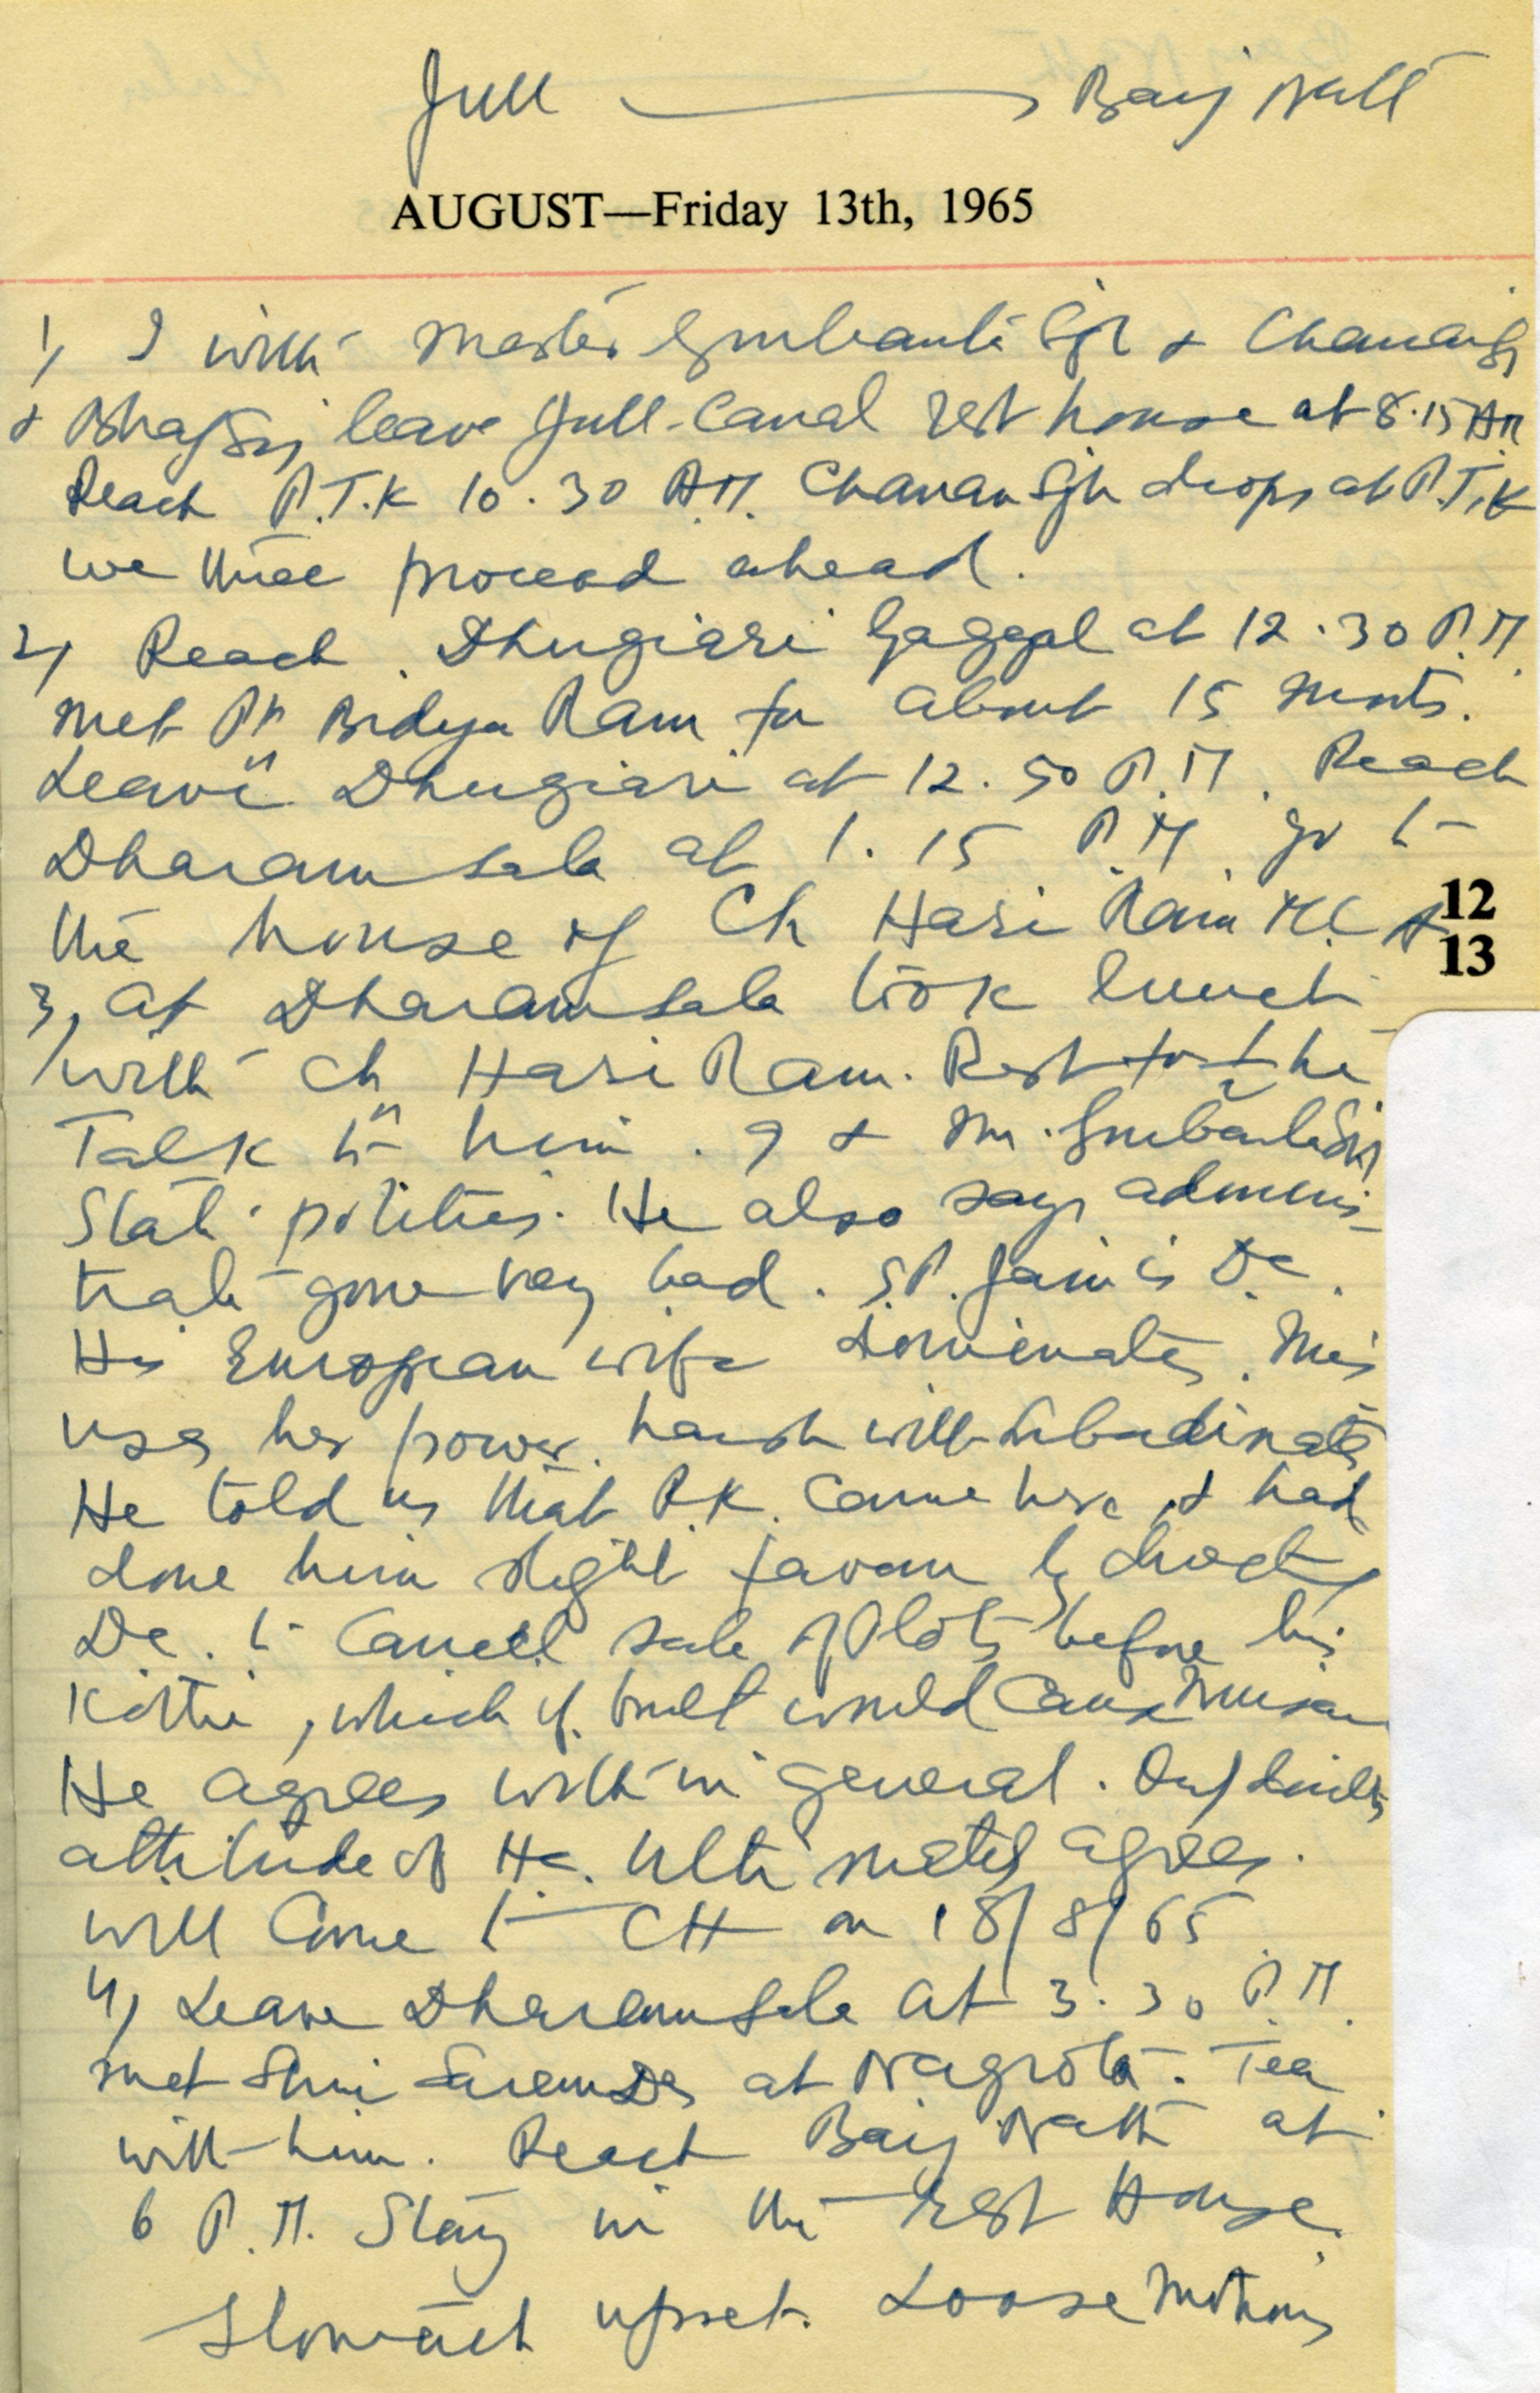 Jull → Baij Nath
AUGUST—Friday 13th, 1965
1) I with Master Gurbanta Sgh & Chanan Sgh
& leave Jull-Canal rest house at 8.15 AM
Reach P.T.K 10.30 A.M. Chanan Sgh drops at P.T.K
we three proceed ahead.
2) Reach Dhugiari Gaggal at 12.30 P.M.
met Pt Bidya Ram for about 15 mnts.
Leave Dhugiari at 12.50 P.M. Reach
Dharamsala at 1.15 P.M. go to
the house of Ch Hari Ram M.L.A
12
13
3) at Dharamsala took lunch
with Ch Hari Ram. Rest
Talk to him. I & M. Gurbanta Sgh
State politics. He also says adminis-
trate gone very bad. S.P. Jain is D.C.
His European wife dominates. Mis
uses her power. harsh with subordinates
He told us that R.K. came here & had
done him slight favour by directing
D.C. to Cancel sale of Plots before his
Kothi, which if built would Cause Nuisance
He agrees with in general.
attitude of H.C. Ultimately agrees.
will Come to CH on 18/8/65
4) Leave Dharamsala at 3.30 P.M.
met Shri at Nagrota. Tea
with him. Reach Baij Nath at
6 P.M. Stay in the rest House.
Stomach upset. Loose Motions